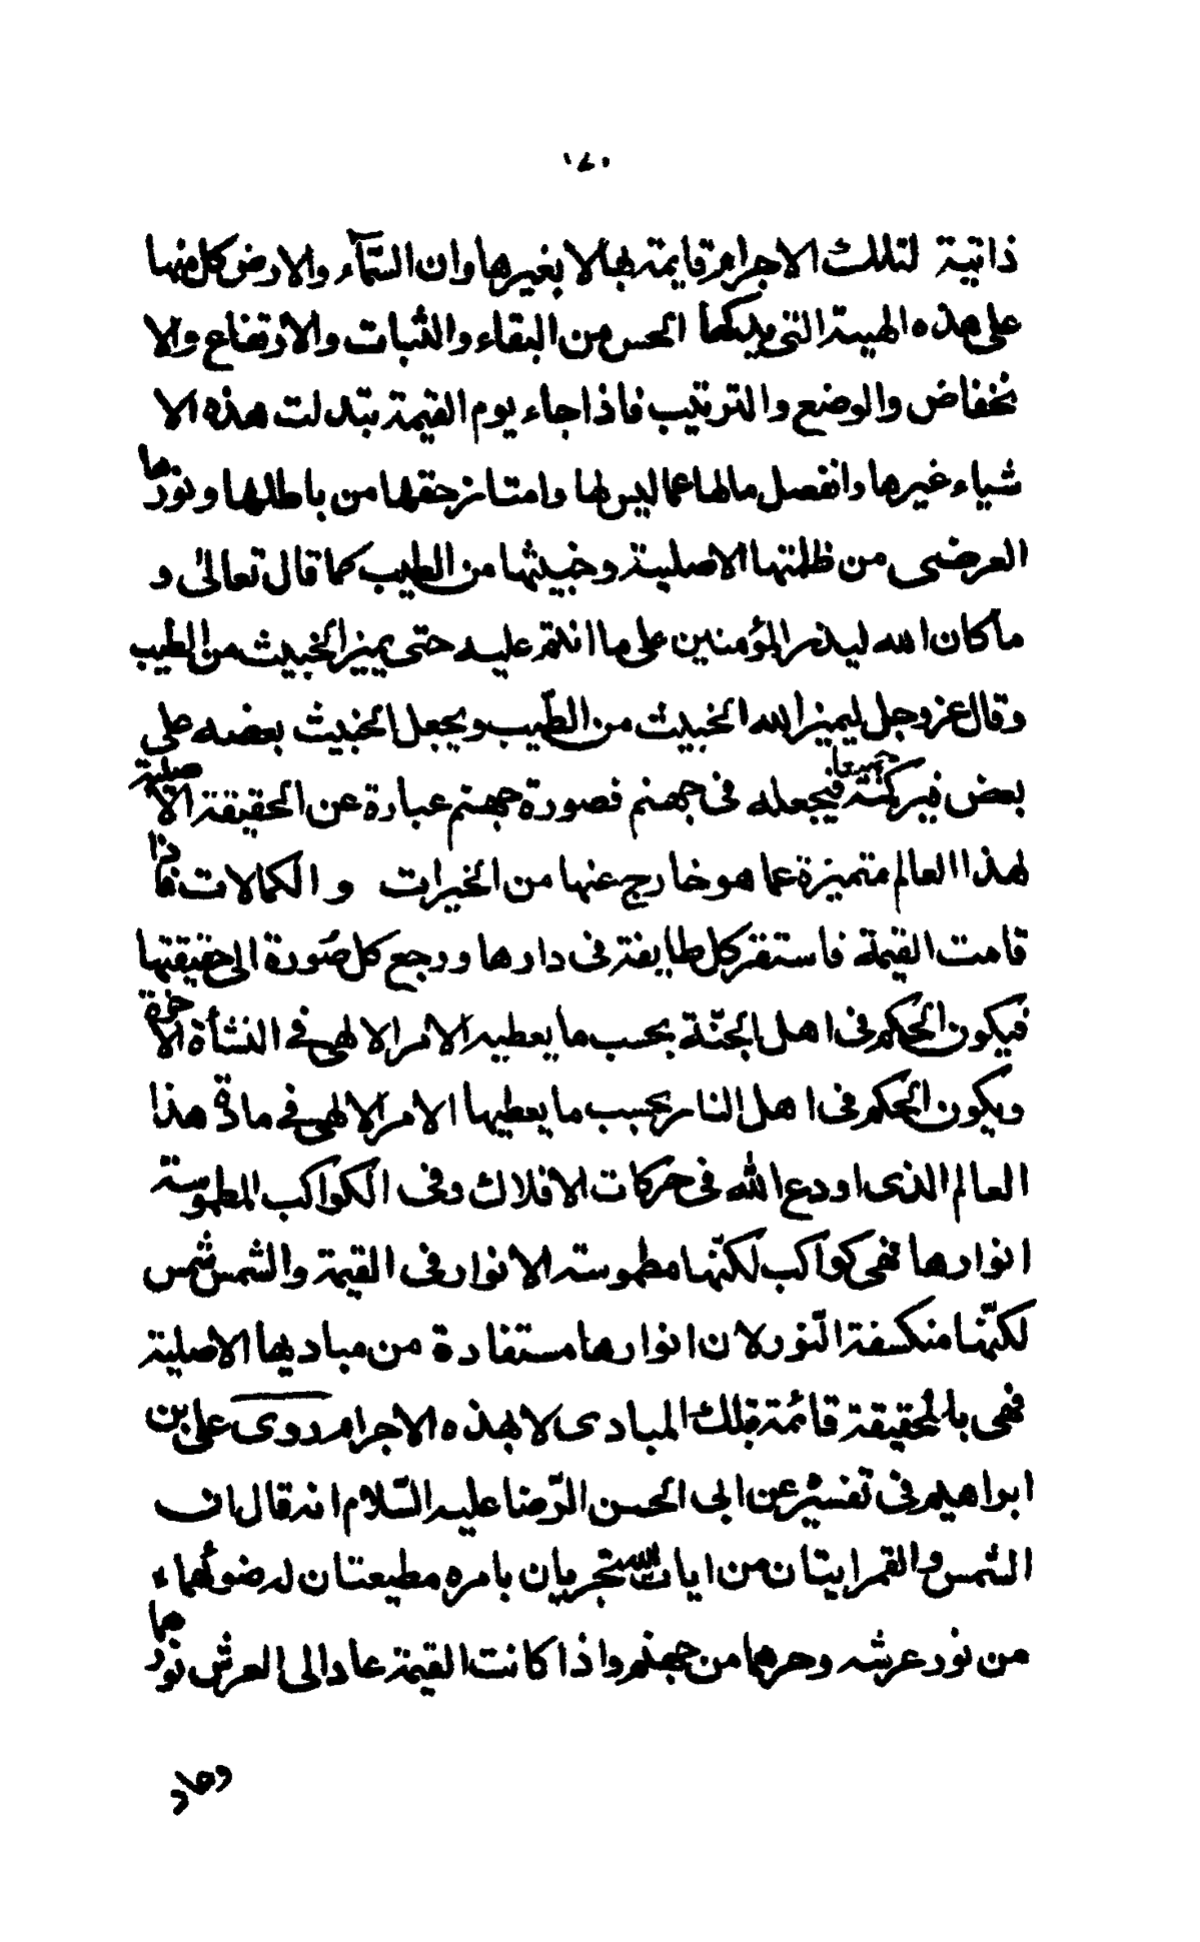 ١٤٠
ذاتية لتلك الاجرام قايمة بها لا بغيرها وان السّمآء والارض كل منها
على هذه الهيئة التى يدركها الحس من البقاء والثبات والارتفاع والا
نخفاض والوضع والترتيب فاذا جاء يوم القيمة بتدلت هذه الا
شياء غيرها وانفصل مالها عما ليس لها وامتاز حقها من باطلها ونورها
العرضى من ظلمتها الاصلية وخبيثها من الطيب كما قال تعالى و
ما كان الله ليذر المؤمنين على ما انتم عليه حتى يميز الخبيث من الطيب
وقال عز وجل ليميز الله الخبيث من الطّيب ويجعل الخبيث بعضه على
بعض فيركمه جميعا فيجعله فى جهنم فصورة جهنم عبارة عن الحقيقة الاصلية
لهذا العالم متميزة عما هو خارج عنها من الخيرات و الكمالات فاذا
قامت القيمة فاستقر كل طايفة فى دارها ورجع كل صورة الى حقيقتها
فيكون الحكم فى اهل الجنّة بحسب ما يعطيه الامر الالهى فى النشأة الاخرة
ويكون الحكم فى اهل النار بحسب ما يعطيها الامر الالهى فى مادة هذا
العالم الذى اودع الله فى حركات الافلاك وفى الكواكب المطموسة
انوارها فهى كواكب لكنّها مطموسة الانوار فى القيمة والشمس شمس
لكنّها منكسفة النّور لان انوارها مستفادة من مباديها الاصلية
فهى بالحقيقة قائمة بتلك المبادى لا بهذه الاجرام روى على بن
ابراهيم فى تفسيره عن ابى الحسن الرّضا عليه السّلام انه قال ان
الشمس والقمر ايتان من ايات الله تجريان بامره مطيعتان له ضوئهماء
من نور عرشه وحرهما من جهنم واذا كانت القيمة عاد الى العرش نورهما
وعاد